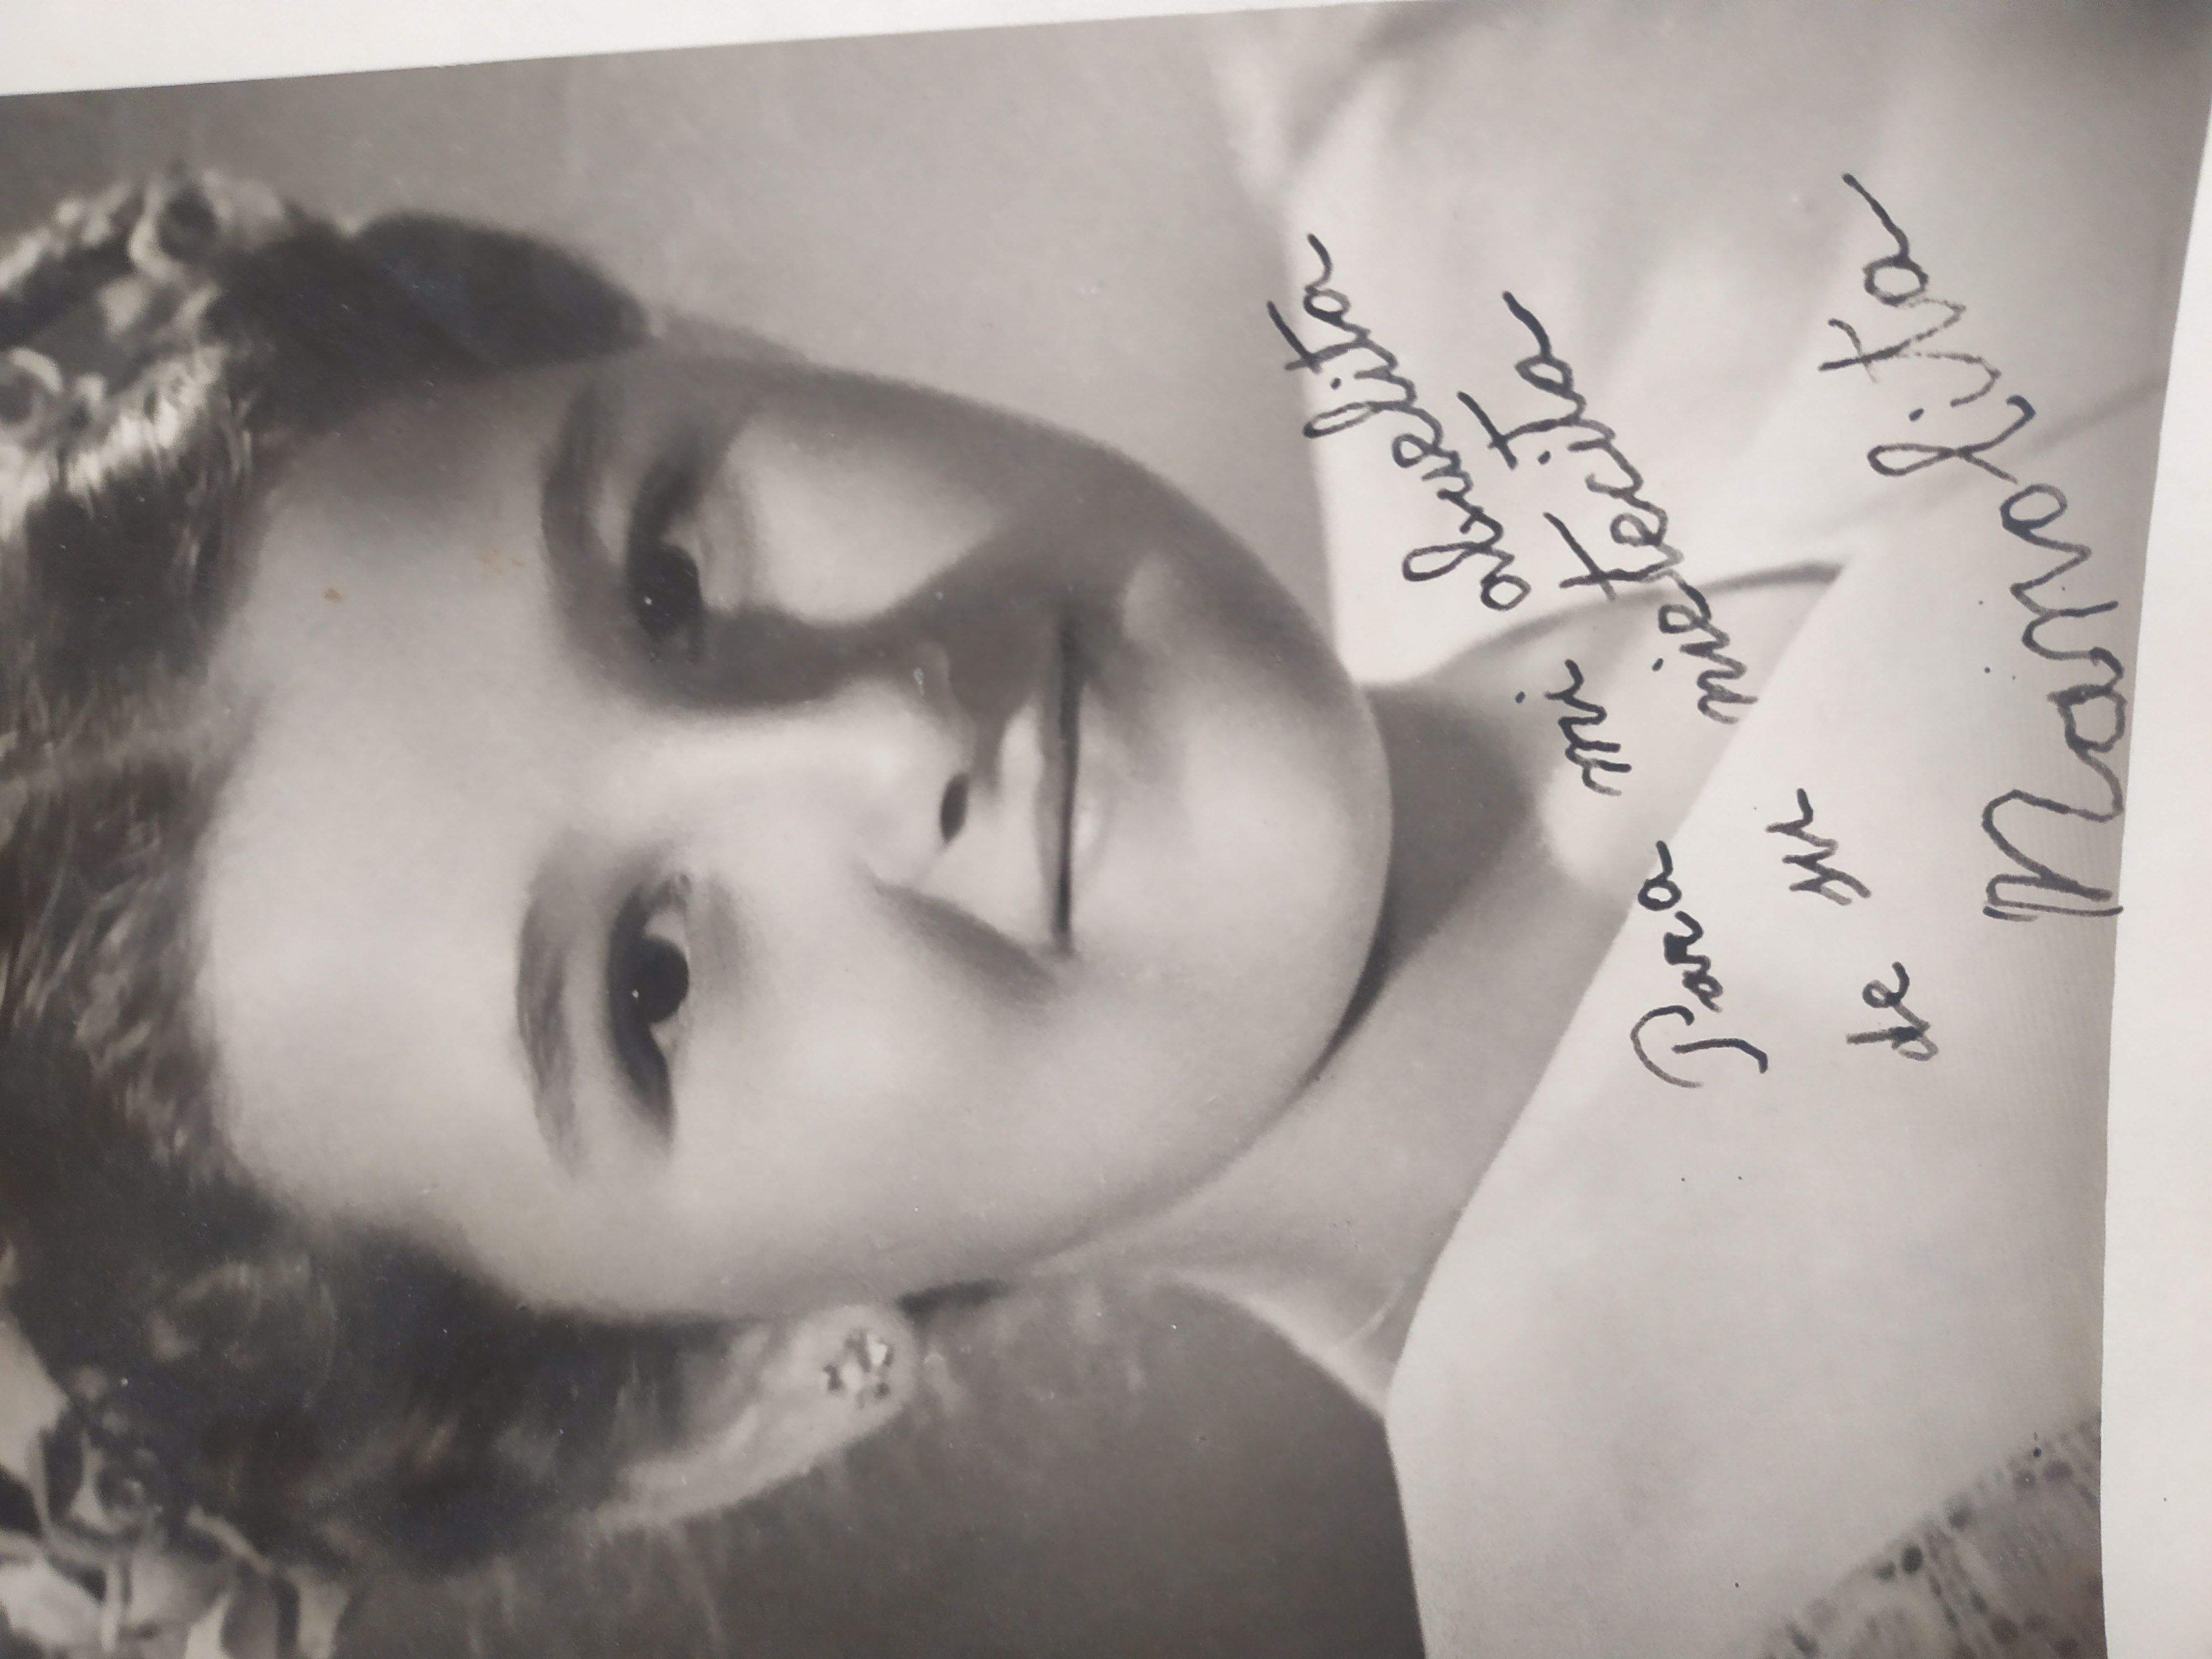 Para mi abuelita
de su nietecita
Manolita